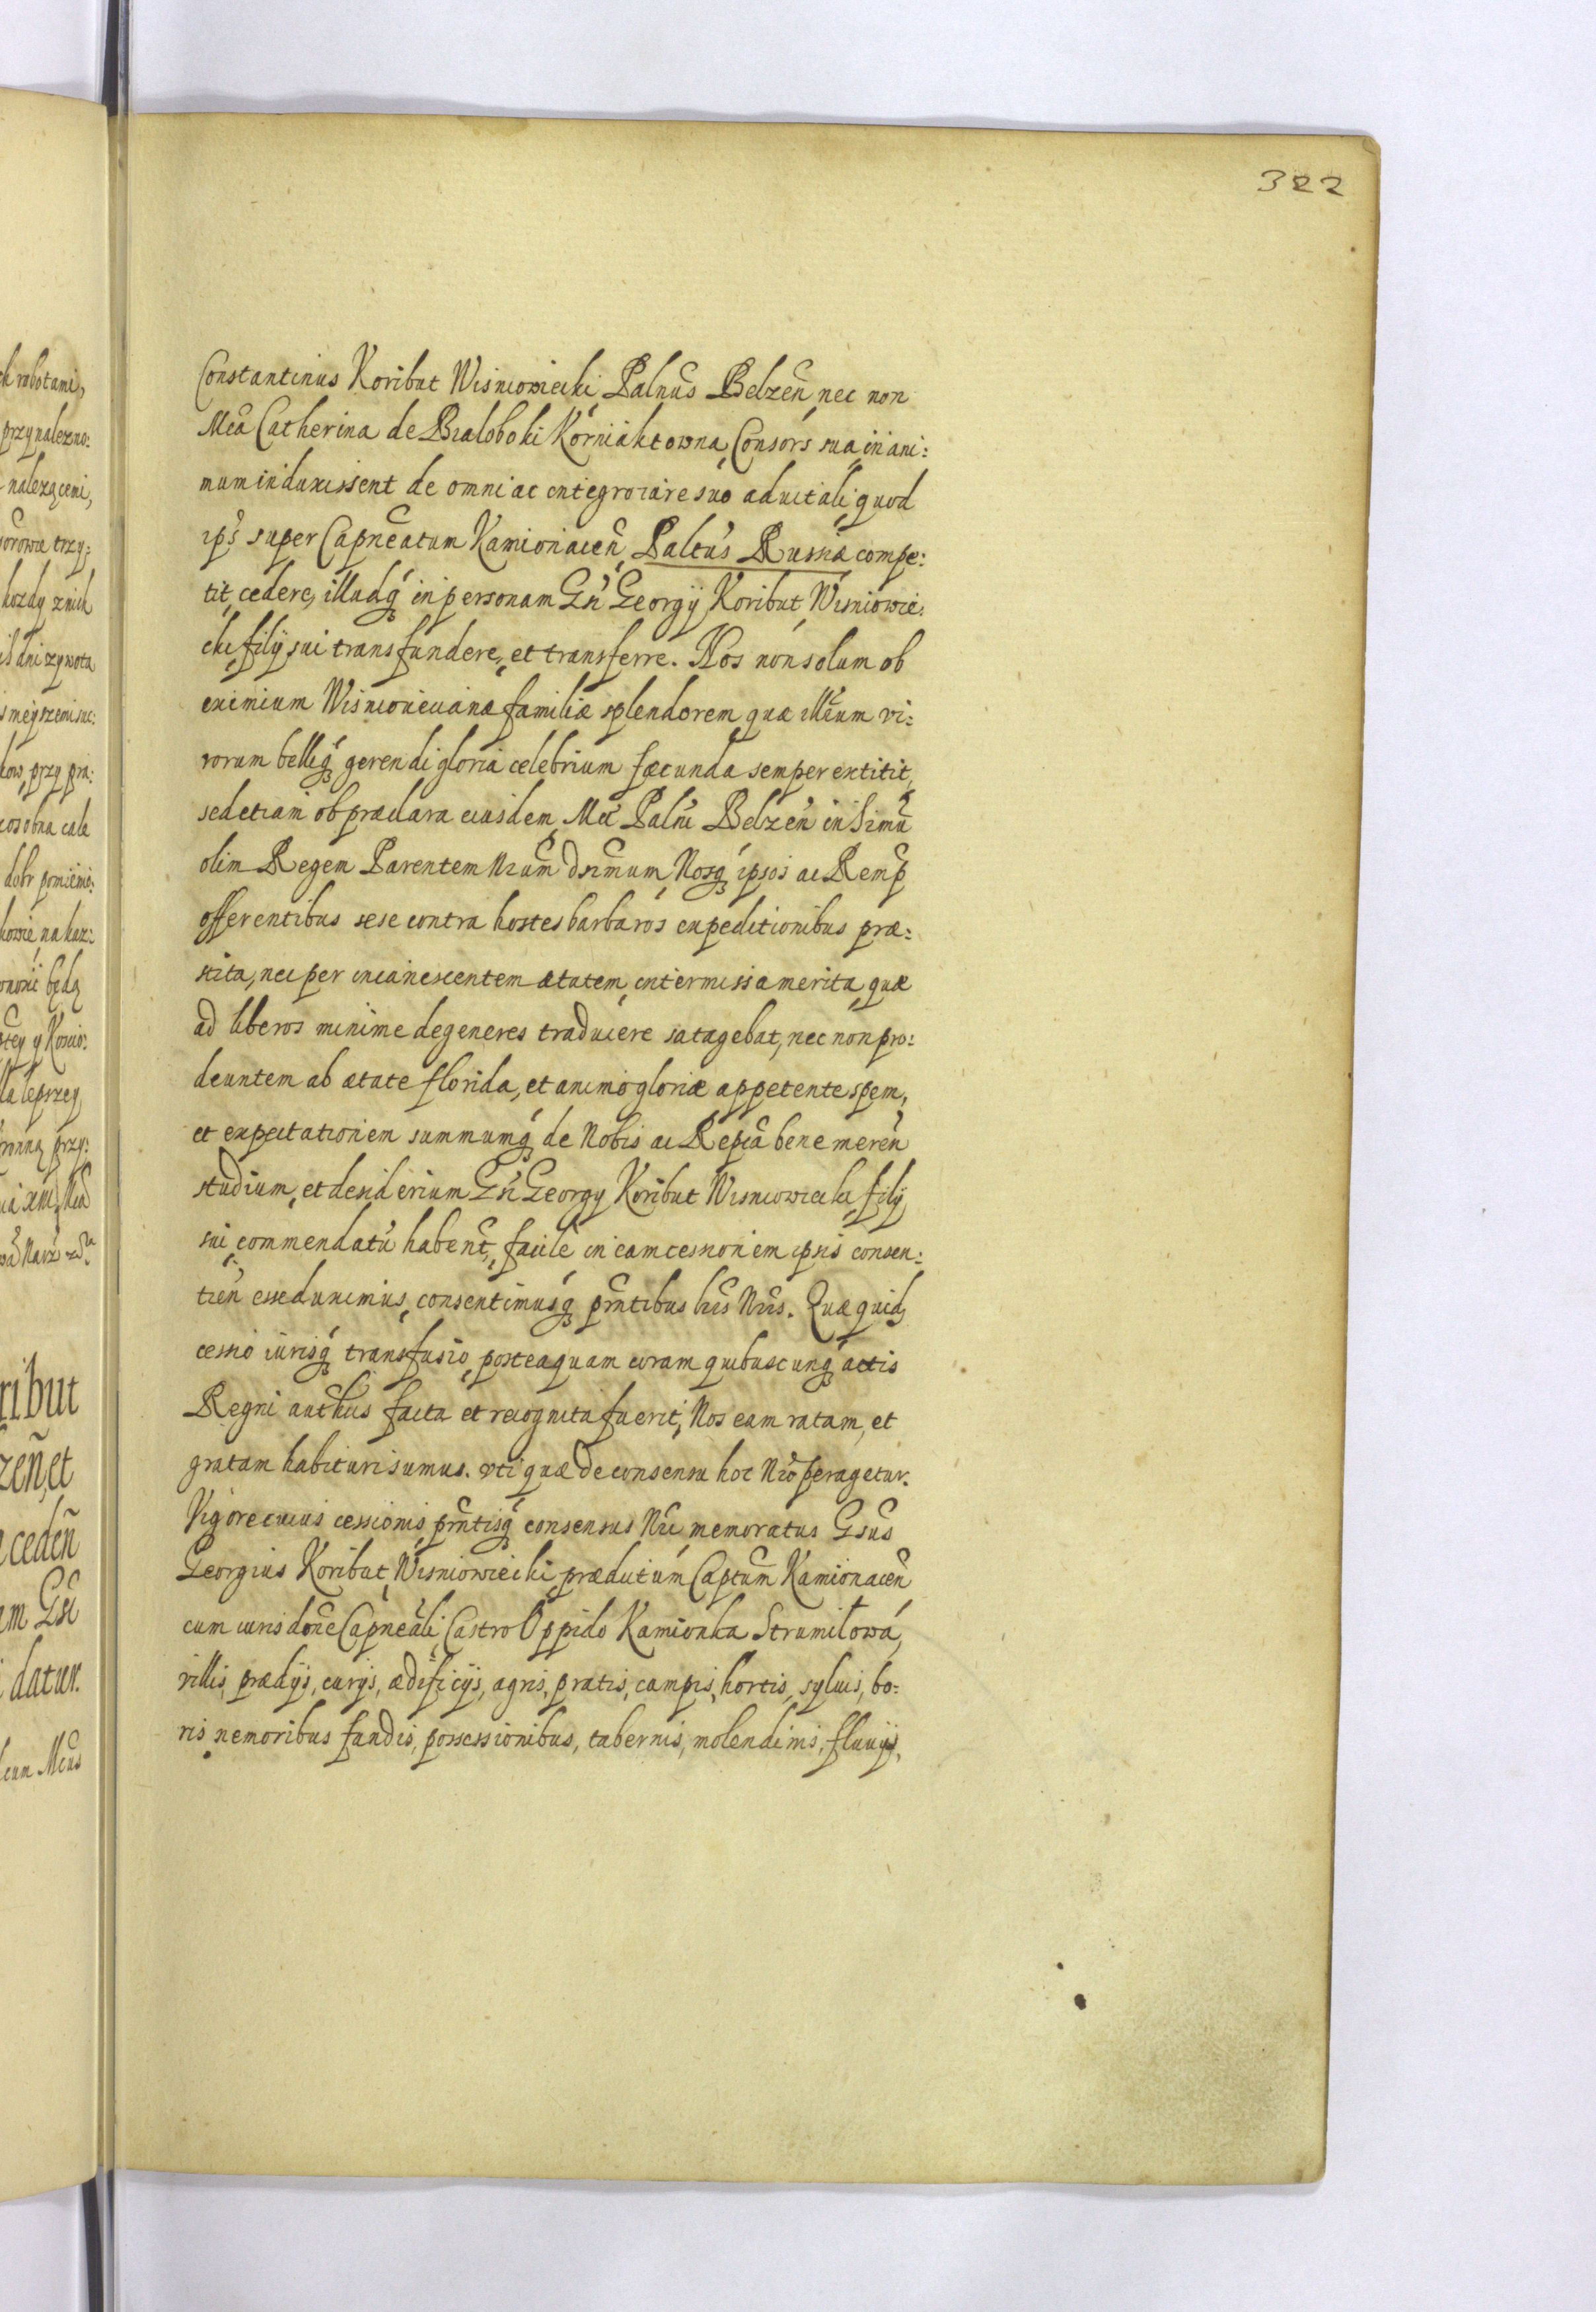 322
Constantinus Koribut Wisniowiecki Palnus Belzeñ nec non
Mca Catherina de Bialoboki Korniaktowna Consors sua in ani:
mum induxissent de omni ac integro iure suo aduitali, quod
ips super Capneatum Kamionaceñ Paltus Russiæ compe:
tit, cedere, illudq in personam Gñ Georgij Koribut Wisniowie:
cki filij sui transfundere, et transferre. Nos non solum ob
eximium Wisnioneuianæ familiæ splendorem quæ illrium vi:
rorum belliq gerendi gloria celebrium fæcunda semper extitit,
sed etiam ob præclara eiusdem Mci Palni Belzeñ in Simũ
olim Regem Parentem Nrum dsimum Nosq ipsos ac Remp
offerentibus sese contra hostes barbaros expeditionibus præ:
stita, nec per incanescentem ætatem intermissa merita, quæ
ad liberos minime degeneres traducere satagebat, nec non pro:
deuntem ab ætate florida, et animo gloriæ appetente spem,
et expectationem summumq de Nobis ac Repca bene mereñ
studium, et desiderium Gñ Georgy Koribut Wisniowiecki filij
sui commendatũ habent, facile in eam cessionem ipsis consen:
tieñ esse duximus, consentimusq pñtibus lris Nris. Quæ quid
cessio iurisq transfusio, posteaquam coram quibuscunq actis
Regni authcis facta et recognita fuerit, Nos eam ratam, et
gratam habituri sumus. vti quæ de consensu hoc Nro peragetur.
Vigore cuius cessionis pñtisq consensus Nri memoratus Gsus
Georgius Koribut Wisniowiecki prædictum Captum Kamionaceñ
cum iurisdone Capneali, Castro Oppido Kamionka Strumiłowa,
villis, prædijs, curijs, ædificijs, agris, pratis, campis, hortis, syluis, bo:
ris nemoribus fundis, possessionibus, tabernis, molendinis, fluuijs,
ch robotami,
przynalezno:
nalezącemi,
trzy:
kozdy znich
dni zywota
przy pra:
cale
dobr pomieni:
na kaz:
będą
y Koscio:
przy:
ribut
zeñ, et
cedeñ
datur.
cum Mcus